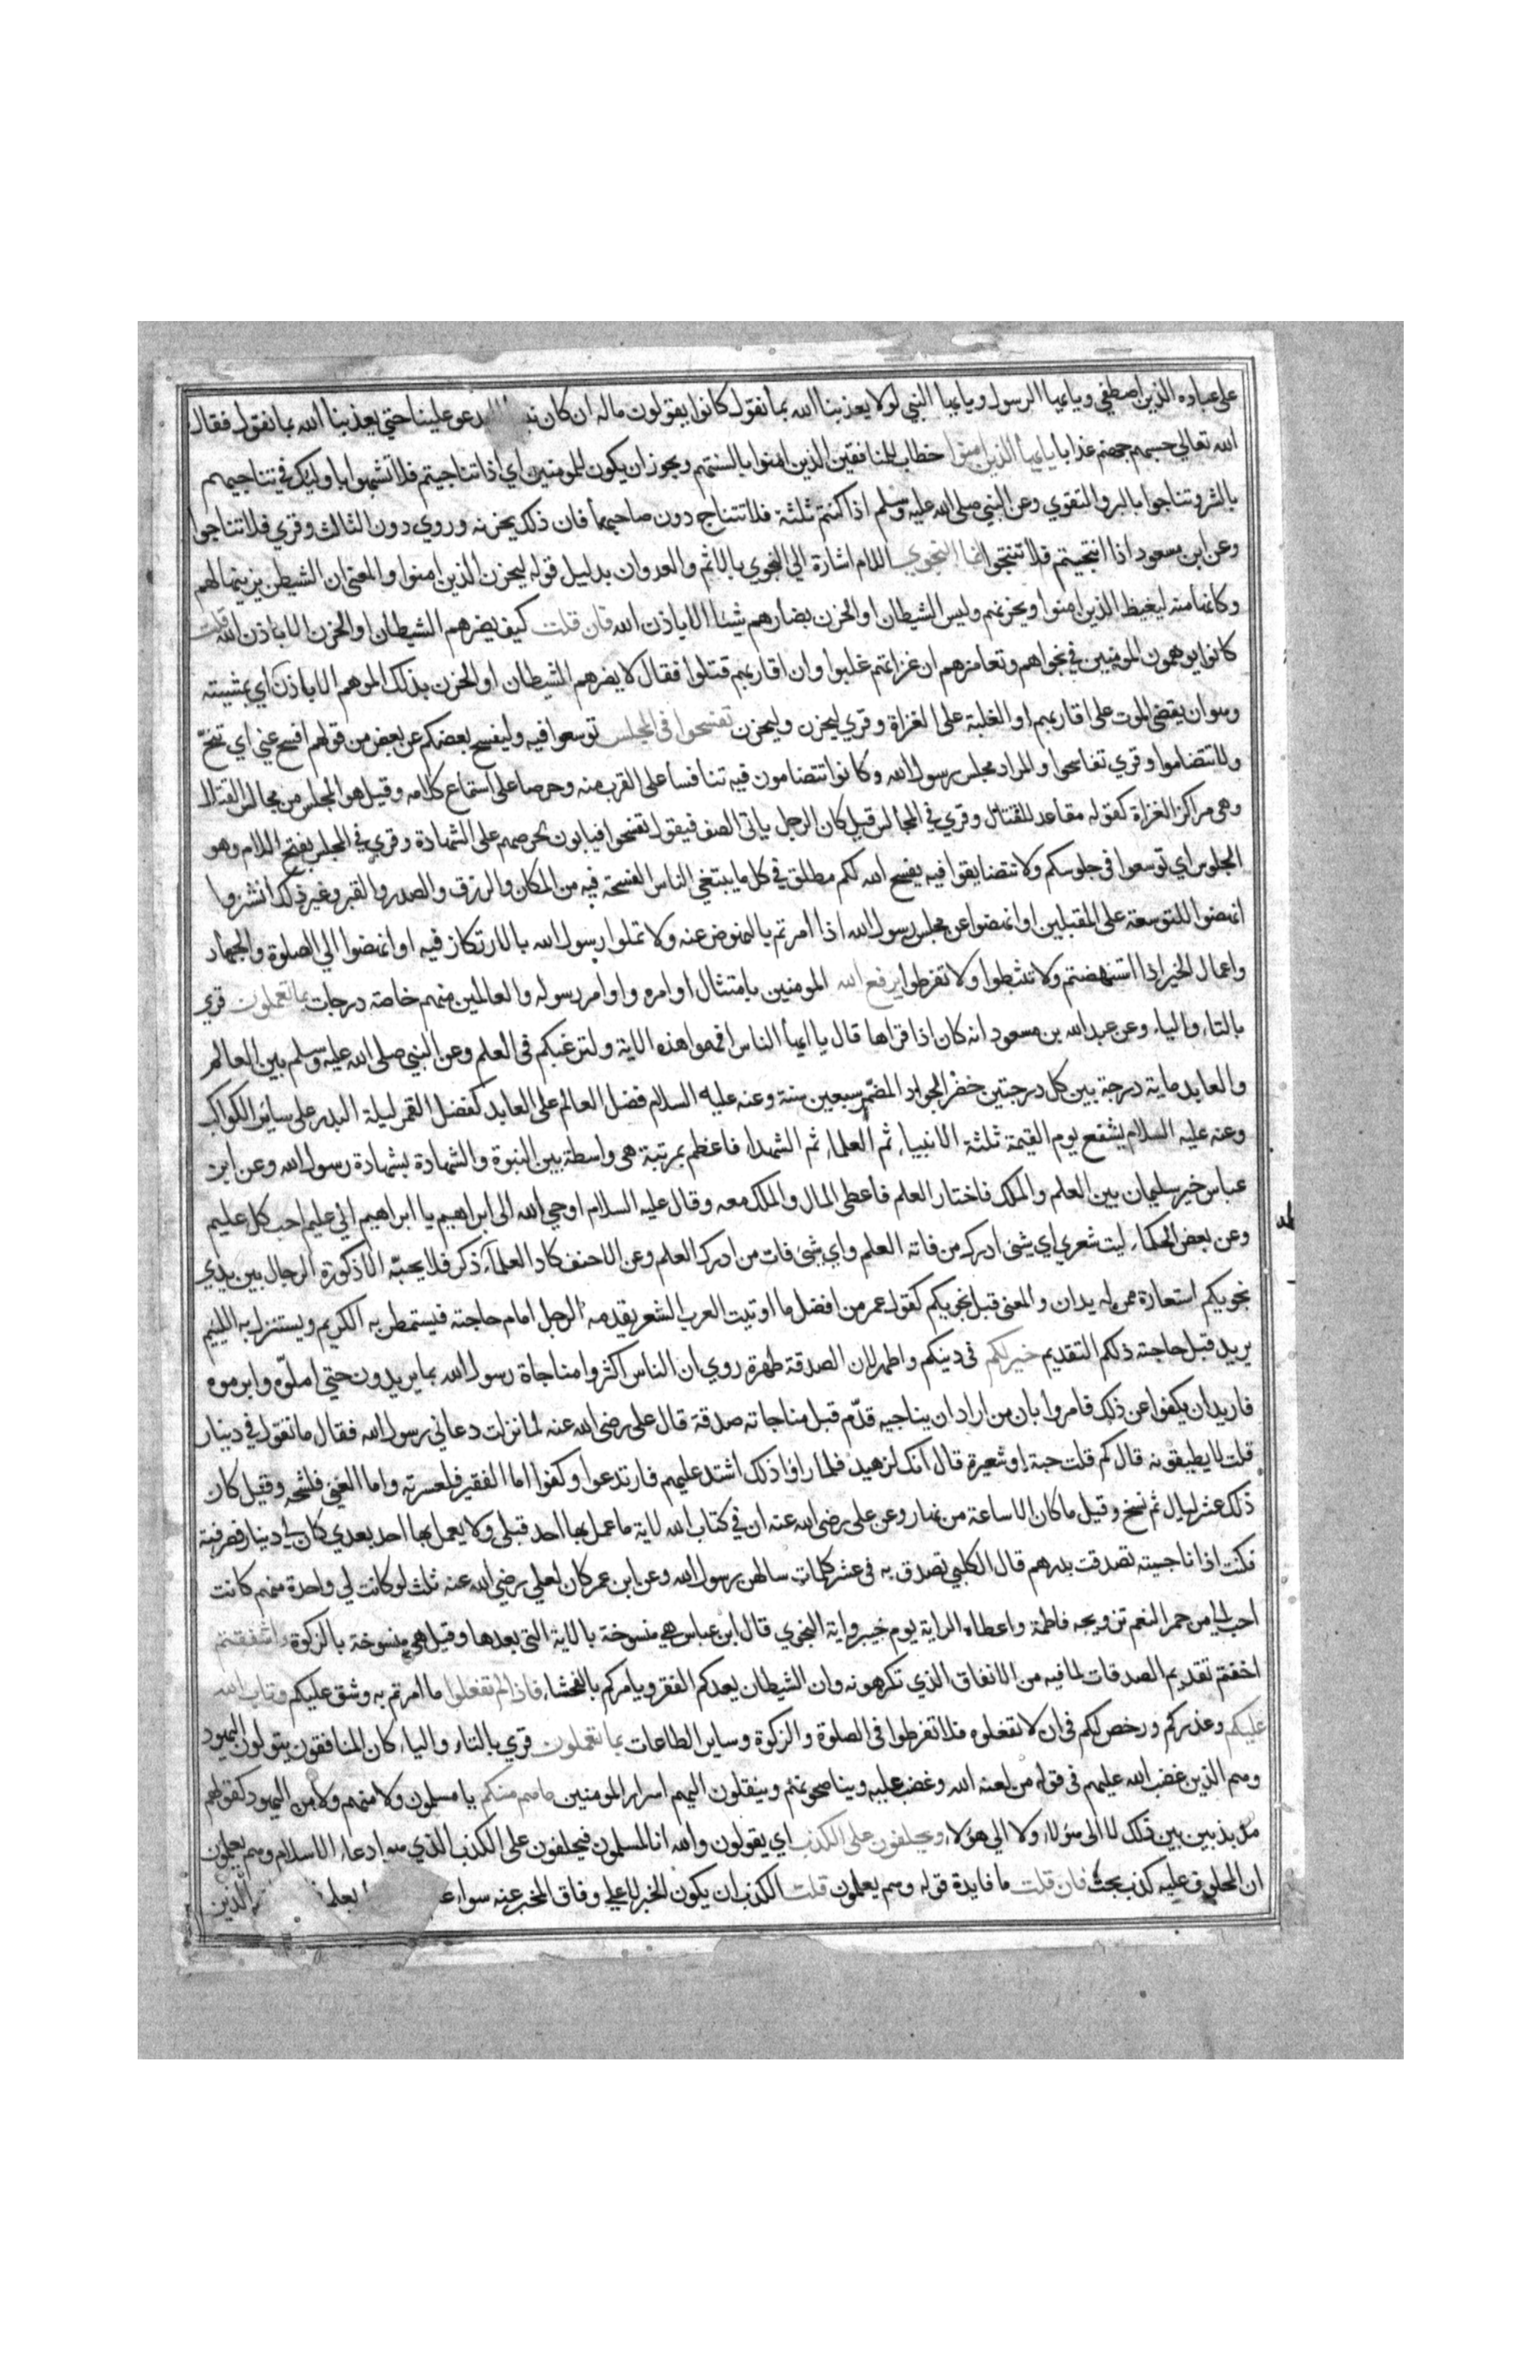 على عباده الذين اصطفي ويا يها الرسول ويا يها النبي لولا يعذبنا الله بما نقول كانوا يقولون ماله ان كان يدعو علينا حتي يعذبنا الله بما نقول فقال
الله تعالي حسبهم جهنم عذابا يايها الذين امنوا خطاب للمنافقين الذين امنوا بالسنتهم ويجوز ان يكون للمومنين اي اذا تناجيتم فلا تشبهوا باوليك في تناجيهم
بالشر وتناجوا بالبر والتقوي وعن النبي صلي الله عليه وسلم اذا كنتم ثلثة فلا تتناج دون صاحبهما فان ذلك يحزنه وروي دون الثالث وقري فلا تناجوا
وعن ابن مسعود اذا انتجيتم فلا تنتجوا انما النجوي اللام اشارة الي النجوي بالاثم والعدوان بدليل قوله ليحزن الذين امنوا والمعني ان الشيطن يزينها لهم
وكانها منه ليغيظ الذين امنوا ويحزنهم وليس الشيطان او الحزن بضارهم شيئا الا باذن الله فان قلت كيف يضرهم الشيطان او الحزن الا باذن الله قلت
كانوا يوهمون المومنين في نجواهم وتغامزهم ان غزاتهم غلبوا وان اقاربهم قتلوا فقال لا يضرهم الشيطان او الحزن بذلك الموهم الا باذن اي بمشيته
وهو ان يقضي الموت علي اقاربهم او الغلبة علي الغزاة وقري ليحزن وليحزن تفسحوا في المجلس توسعوا فيه وليفسح بعضكم عن بعض من قولهم افسح عني اي تنح
ولا تتضاموا وقري تفاسحوا والمراد مجلس رسول الله وكانوا تتضامون فيه تنافسا علي القرب منه وحرصا علي استماع كلامه وقيل هو المجلس من مجالس القتال
وهي مراكز الغزاة كقوله مقاعد للقتال وقري في المجالس قيل كان الرجل ياتي الصف فيقول تفسحوا فيابون لحرصهم علي الشهادة وقري في المجلس بفتح اللام وهو
الجلوس اي توسعوا في جلوسكم ولا تتضايقوا فيه يفسح الله لكم مطلق في كل ما يبتغي الناس الفسحة فيه من المكان والرزق والصدر والقبر وغير ذلك انشزوا
انهضوا للتوسعة علي المقبلين او انهضوا عن مجلس رسول الله اذا امرتم بالنهوض عنه ولا تملوا رسول الله بالارتكاز فيه او انهضوا الي الصلوة والجهاد
واعمال الخير اذا استنهضتم ولا تثبطوا ولا تفرطوا يرفع الله المومنين بامتثال اوامره واوامر رسوله والعالمين منهم خاصة درجات بما تعملون قري
بالتاء والياء وعن عبد الله بن مسعود انه كان اذا قراها قال يا ايها الناس افهموا هذه الاية ولترغبكم في العلم وعن النبي صلي الله عليه وسلم بين العالم
والعابد ماية درجة بين كل درجتين حضر الجواد المضمر سبعين سنة وعنه عليه السلام فضل العالم علي العابد كفضل القمر ليلة البدر علي ساير الكواكب
وعنه عليه السلام يشفع يوم القيمة ثلثة الانبياء ثم العلماء ثم الشهداء فاعظم بمرتبة هي واسطة بين النبوة والشهادة بشهادة رسول الله وعن ابن
عباس خير سليمان بين العلم والملك فاختار العلم فاعطي المال والملك معه وقال عليه السلام اوحي الله الي ابراهيم يا ابراهيم اني عليم احب كل عليم
وعن بعض الحكماء ليت شعري اي شئ ادرك من فاته العلم واي شئ فات من ادرك العلم وعن الاحنف كاد العلماء ذكر فلا يحبه الا ذكورة الرجال بين يدي
نجويكم استعارة ممن له يدان والمعني قبل نجويكم كقول عمر من افضل ما اوتيت العرب الشعر يقدمه الرجل امام حاجته فيستمطر به الكريم ويستنزل به اللييم
يريد قبل حاجته ذلكم التقديم خير لكم في دينكم واطهر لان الصدقة طهرة روي ان الناس اكثروا مناجاة رسول الله بما يريدون حتي املوه وابرموه
فاريد ان يكفوا عن ذلك فامروا بان من اراد ان يناجيه قدم قبل مناجاته صدقة قال علي رضي الله عنه لما نزلت دعاني رسول الله فقال ما تقول في دينار
قلت لا يطيقونه قال كم قلت حبة او شعيرة قال انك لزهيد فلما راوا ذلك اشتد عليهم فارتدعوا وكفوا اما الفقير فلعسرته واما الغني فلشحه وقيل كان
ذلك عشر ليال ثم نسخ وقيل ما كان الا ساعة من نهار وعن علي رضي الله عنه ان في كتاب الله لاية ما عمل بها احد قبلي ولا يعمل بها احد بعدي كان لي دينار فصرفته
فكنت اذا ناجيته تصدقت بدرهم قال الكلبي تصدق به في عشر كلمات سالهن رسول الله وعن ابن عمر كان لعلي رضي الله عنه ثلث لو كانت لي واحدة منهم كانت
احب الي من حمر النعم تزويجه فاطمة واعطاه الراية يوم خيبر واية النجوي قال ابن عباس هي منسوخة بالاية التي بعدها وقيل هي منسوخة بالزكوة ءاشفقتم
اخفتم تقديم الصدقات لما فيه من الانفاق الذي تكرهونه وان الشيطان يعدكم الفقر ويامركم بالفحشاء فاذ لم تفعلوا ما امرتم به وشق عليكم وتاب الله
عليكم وعذركم ورخص لكم في ان لا تفعلوه فلا تفرطوا في الصلوة والزكوة وساير الطاعات بما تعملون قري بالتاء والياء كان المنافقون يتولون اليهود
وهم الذين غضب الله عليهم في قوله من لعنه الله وغضب عليه ويناصحونهم وينقلون اليهم اسرار المومنين ما هم منكم يا مسلمون ولا منهم ولا من اليهود كقولهم
مذبذبين بين ذلك لا الي هؤلاء ولا الي هؤلاء ويحلفون علي الكذب اي يقولون والله انا لمسلمون فيحلفون علي الكذب الذي هو ادعاء الاسلام وهم يعلمون
ان المحلوف عليه كذب بحت فان قلت ما فايدة قوله وهم يعلمون قلت الكذب ان يكون الخبر لا علي وفاق المخبر عنه سواء الذين